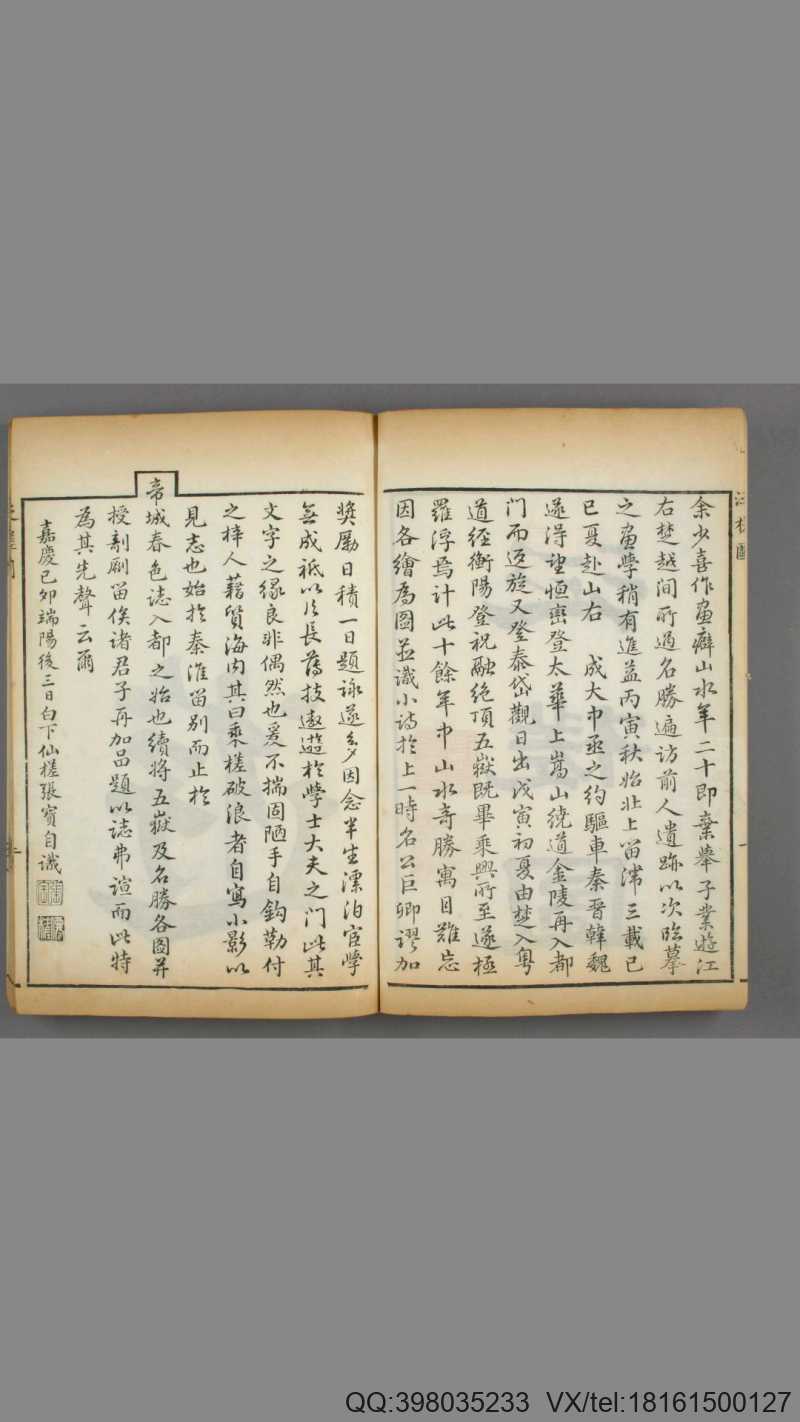 余少喜作画癖山水年二十即棄舉子業遊江
右楚越間所過名勝遍访前人遺跡以次臨摹
之画學稍有進益丙寅秋始北上畱滯三載己
巳夏赴山右 成大中丞之約驅車秦晉韓魏
遂得望恒巒登太華上嵩山绕道金陵再入都
门而返旋又登泰岱觀日出戊寅初夏由楚入粤
道經衡陽登祝融绝頂五嶽既畢乘興所至遂極
羅浮焉计此十餘年中山水奇勝寓目難忘
因各繪為圖並識小诗於上一時名公巨卿謬加
奬勵日積一日題詠遂多因念半生漂泊宦學
無成祗以片長薄技遨遊於學士大夫之门此其
文字之缘良非偶然也爰不揣固陋手自鈎勒付
之梓人藉質海内其曰乘槎破浪者自寫小影以
見志也始於秦淮畱别而止於
帝城春色誌入都之始也續將五嶽及名勝各圖并
授剞劂畱俟诸君子再加品題以誌弗諠而此特
為其先聲云爾
嘉慶己卯端陽後三日白下仙槎張寳自識
QQ:398035233 VX/tel:18161500127